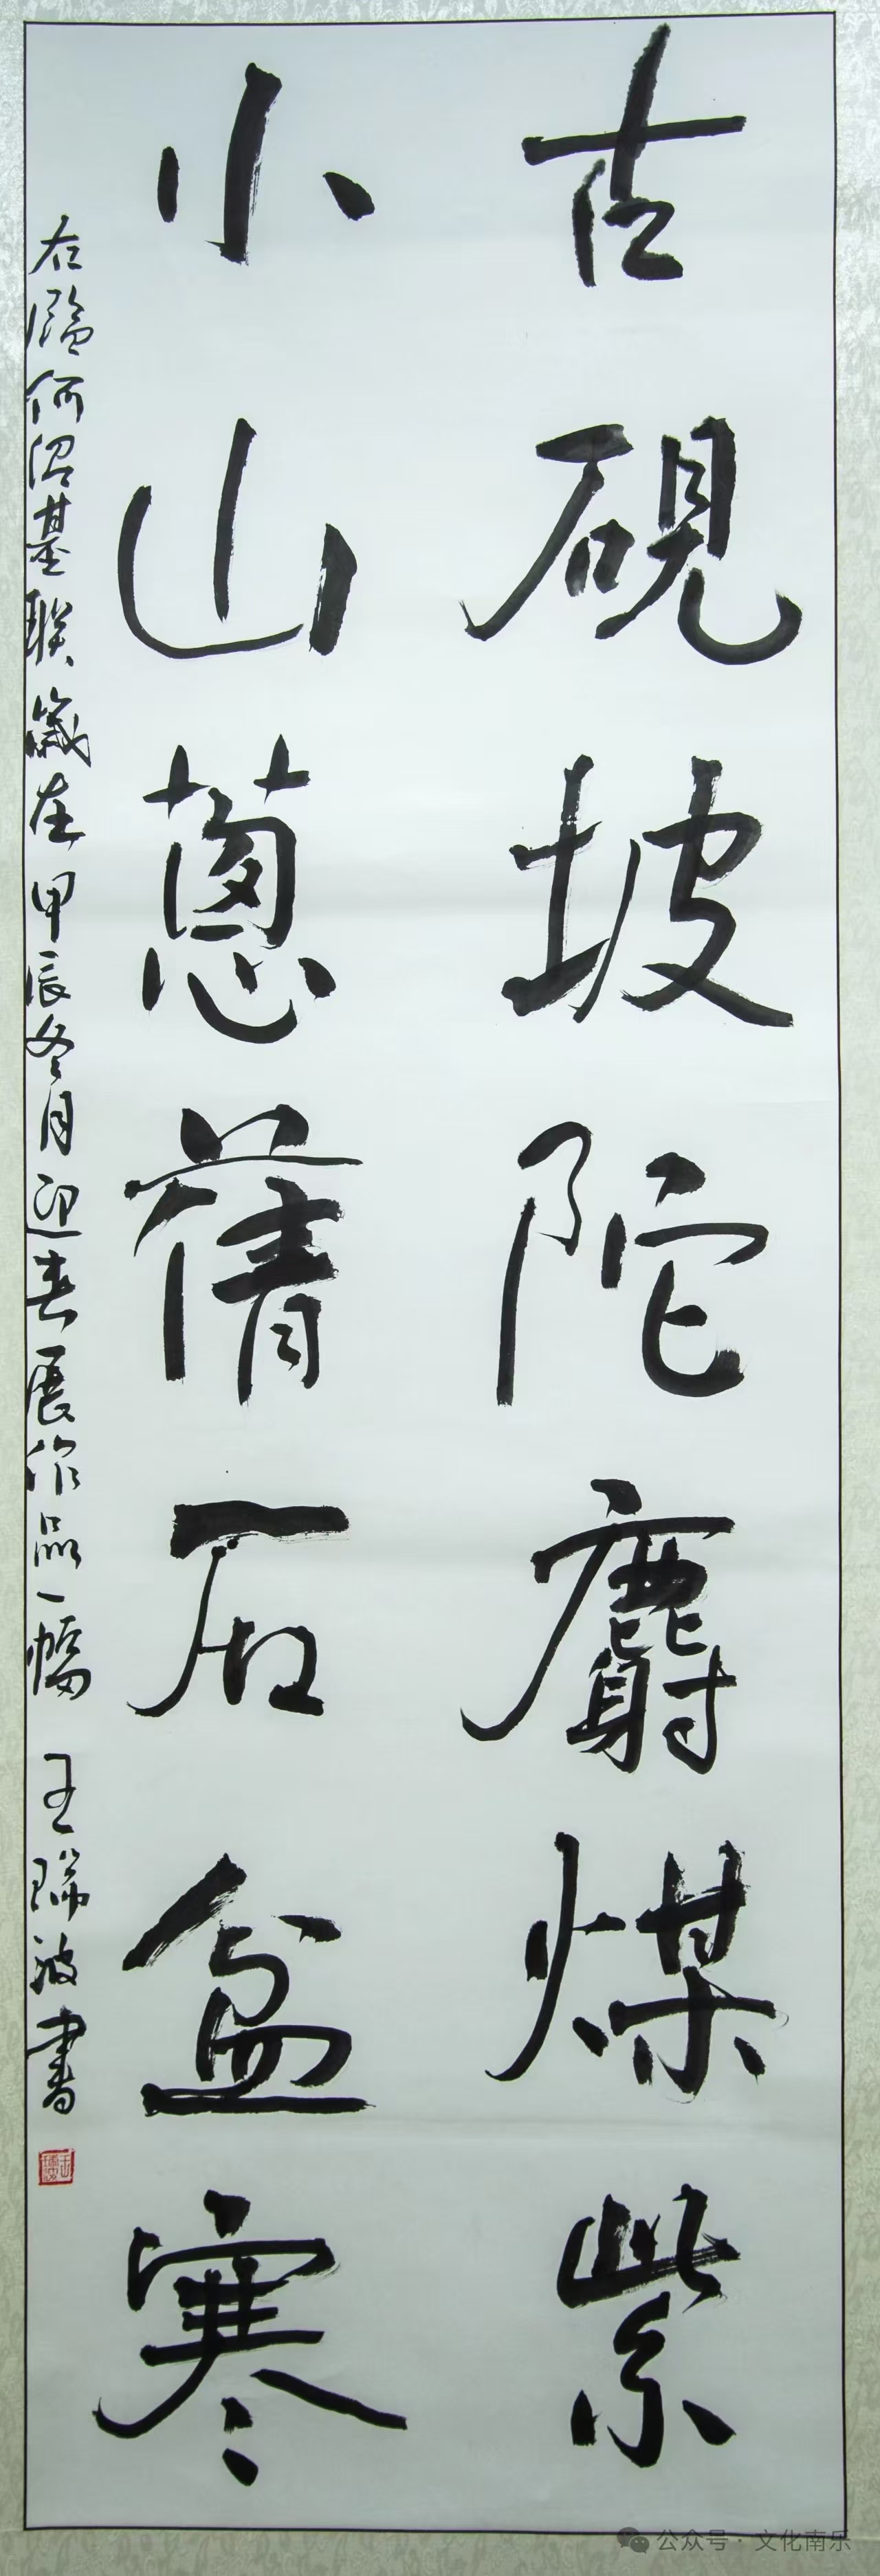 古硯坡陀麝煤紫
小山蔥蒨石盆寒
右臨何紹基聯歲在甲辰冬月迎春展作品一幅 王瑞波書
公众号·文化南乐